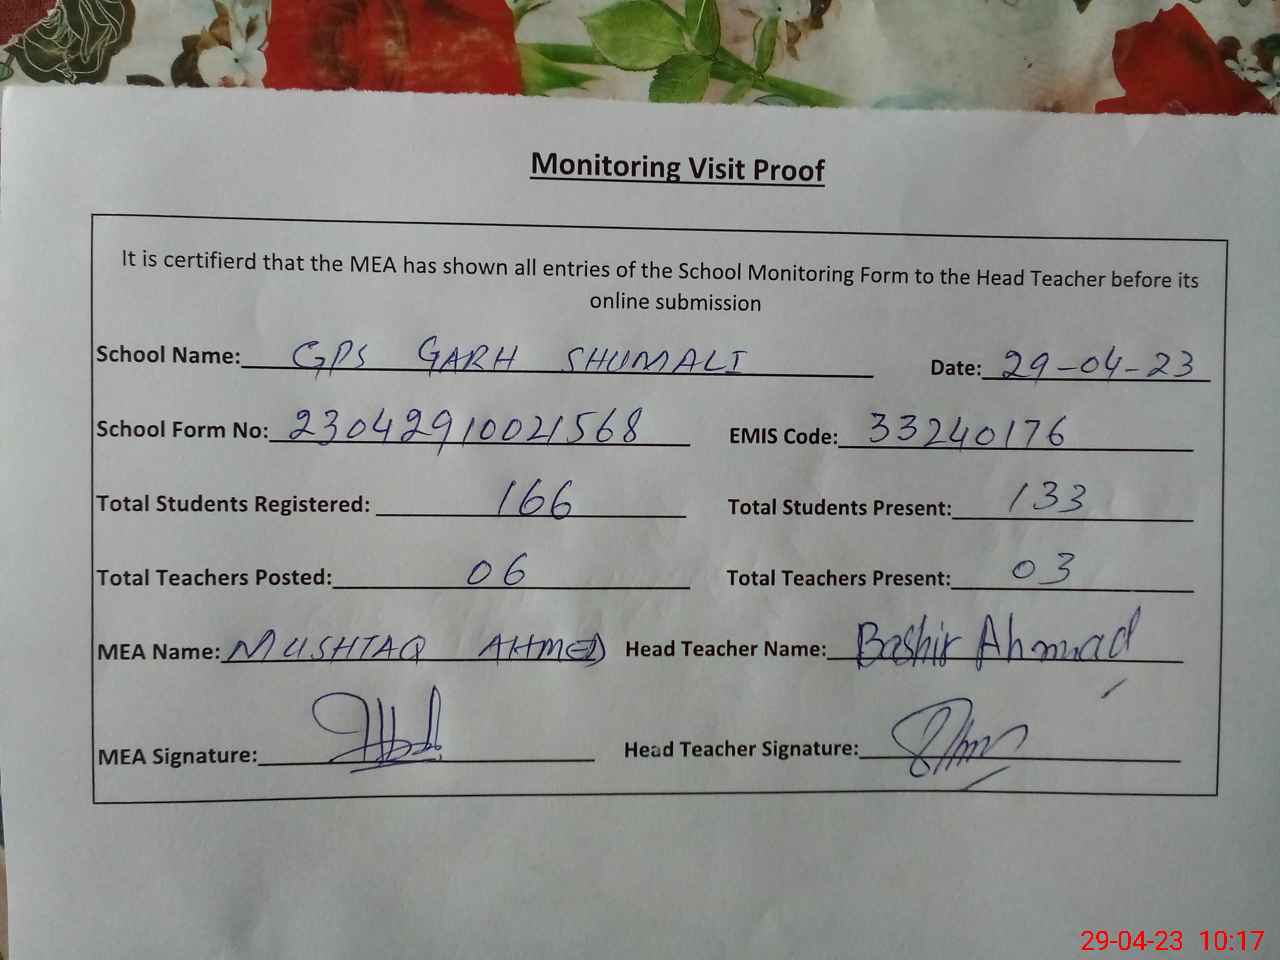 Monitoring Visit Proof
It is certifierd that the MEA has shown all entries of the School Monitoring Form to the Head Teacher before its
online submission
School Name: GPS GARH SHUMALI Date: 29-04-23
School Form No: 23042910021568 EMIS Code: 33240176
Total Students Registered: 166 Total Students Present: 133
Total Teachers Posted: 06 Total Teachers Present: 03
MEA Name: MUSHTAQ AHMED Head Teacher Name: Bashir Ahmad
MEA Signature: Head Teacher Signature:
29-04-23 10:17